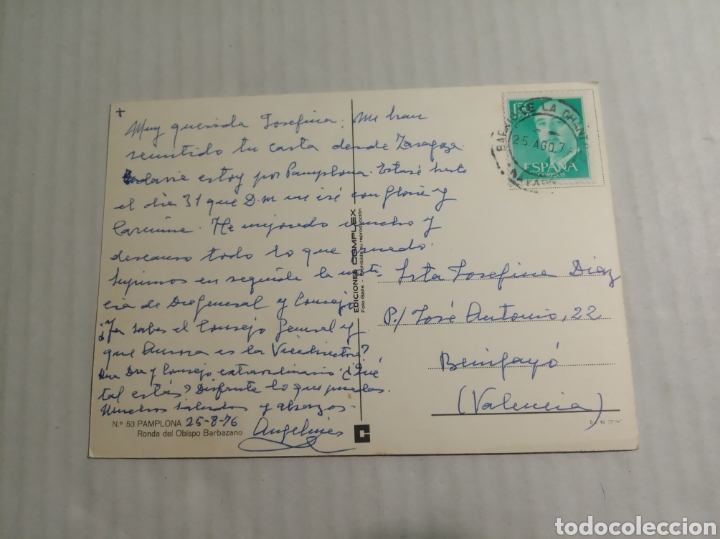 +
Muy querida Josefina: Me han
remitido tu carta desde Zaragoza
estoy por Pamplona. Estaré hasta
el día 31 que D.m me iré con Gloria y
Carmina. He mejorado mucho y
descanso todo lo que puedo.
Supimos en seguida la noti-
cia de Dra General y Consejo
¿Ya sabes el Consejo General y
que Aurora es la Vicedirectora?
Dra y Consejo extraordinario ¿Qué
tal estás? Disfruta lo que puedas.
Muchos saludos y abrazos.
Angelines
25-8-76
N.º 53 PAMPLONA
Ronda del Obispo Barbazano
EDICIONES COMPLEX
25 AGO.7
ESPAÑA
Srta Josefina Diaz
P./ José Antonio, 22
Benifayó
(Valencia)
todocoleccion